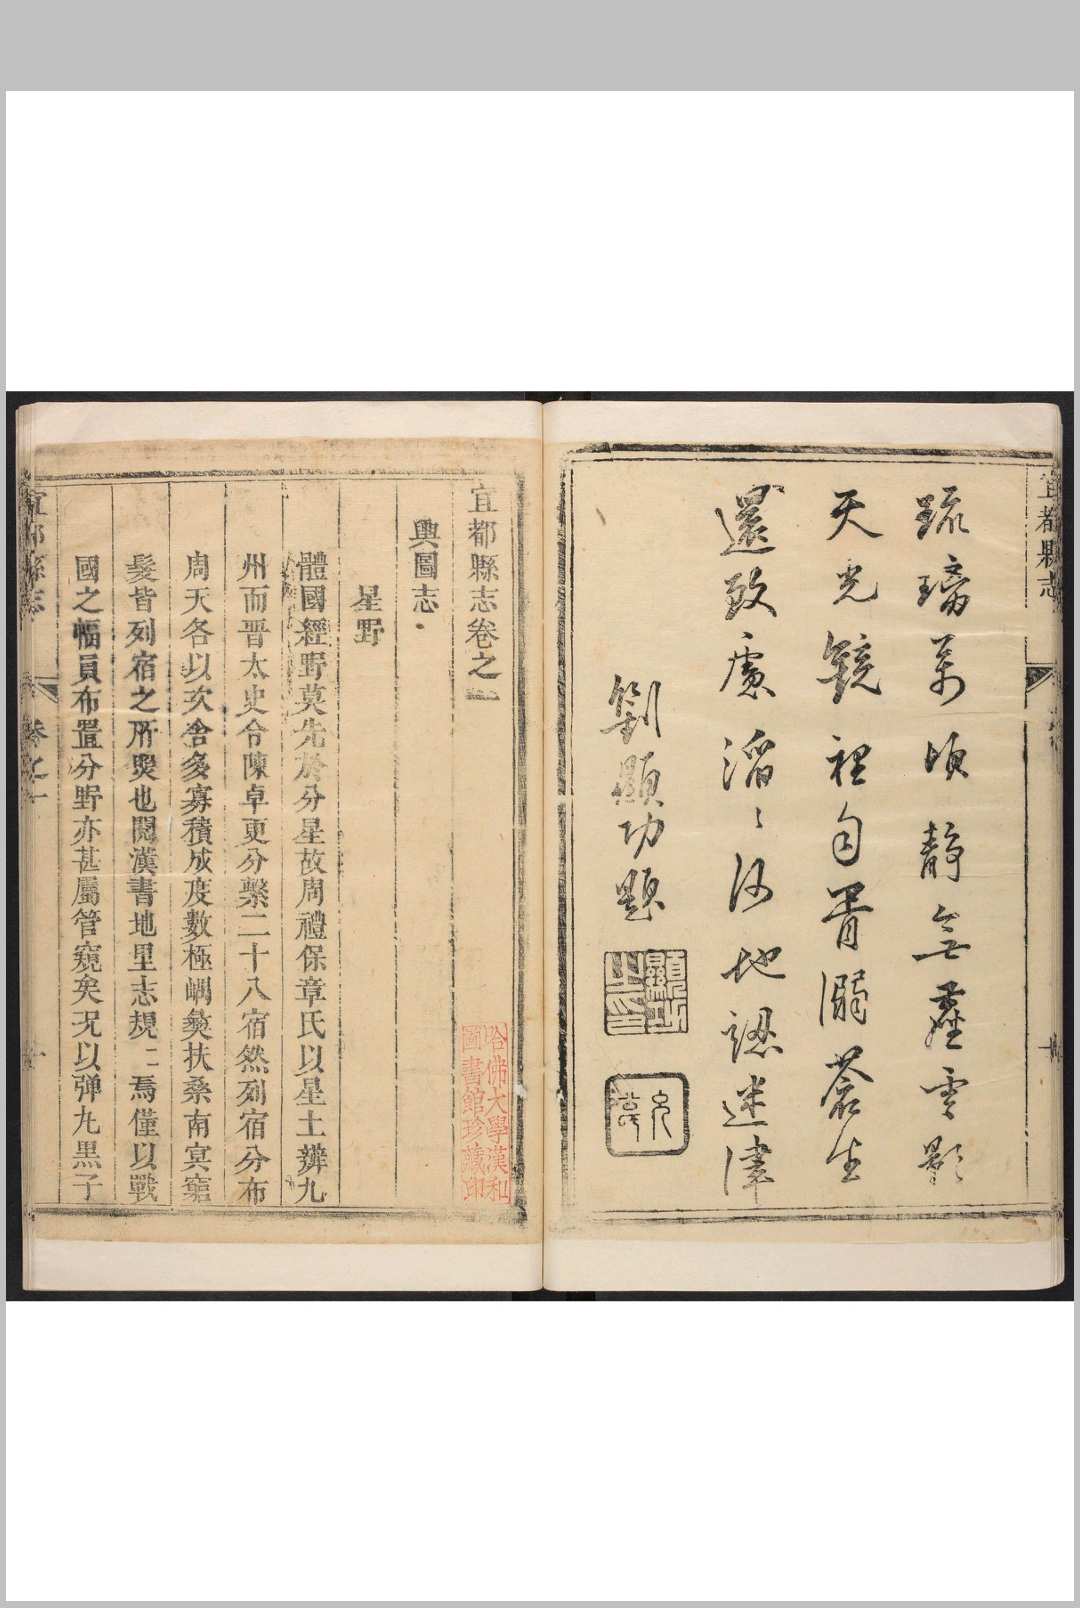 宜都縣志
琉璃萬頃靜無塵雲影
天光鏡裡勻胥溺蒼生
還致慮滔滔何地認迷津
劉顯功題
宜都縣志卷之一
輿圖志
星野
體國經野莫先於分星故周禮保章氏以星土辨九
州而晋太史令陳卓更分繫二十八宿然列宿分布
周天各以次舍多寡積成度數極嵎夷扶桑南冥窮
髮皆列宿之所煚也閱漢書地里志規二焉僅以戰
國之幅員布置分野亦甚屬管窺矣况以弹丸黒子
宜都縣志
卷之一
哈佛大學漢和
圖書館珍藏印